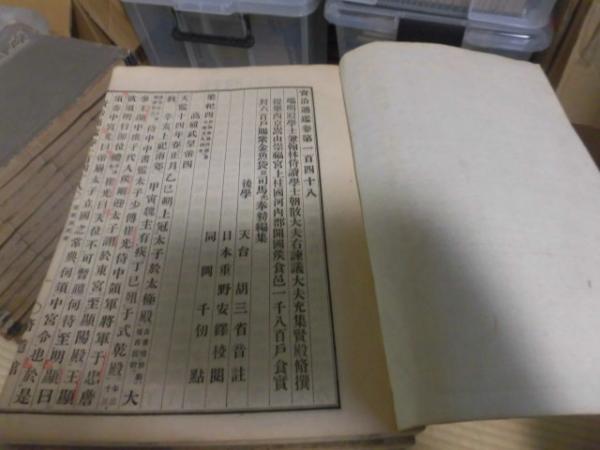 資治通鑑卷第一百四十八
端明殿學士兼翰林侍讀學士朝散大夫右諫議大夫充集賢殿脩撰
提舉西京嵩山崇福宮上柱國河內郡開國侯食邑一千八百戶食實
封六百戶賜紫金魚袋臣司馬光奉敕編集
後學 天台 胡三省音註
日本重野安繹校閱
同 岡 千仞 點
梁紀四
高祖武皇帝四
天監十四年春正月乙巳朔上冠太子於太極殿 大
赦辛亥上祀南郊 甲寅魏主有疾丁巳殂于式乾殿
侍中中書監太子少傅崔光侍中領軍將軍于忠詹
事王顯中庶子代人侯剛迎太子詡於東宮至顯陽殿王顯
欲須明行即位禮崔光曰天位不可暫曠何待至明顯曰
須奏中宮光曰帝崩太子立國之常典何須中宮令也於是